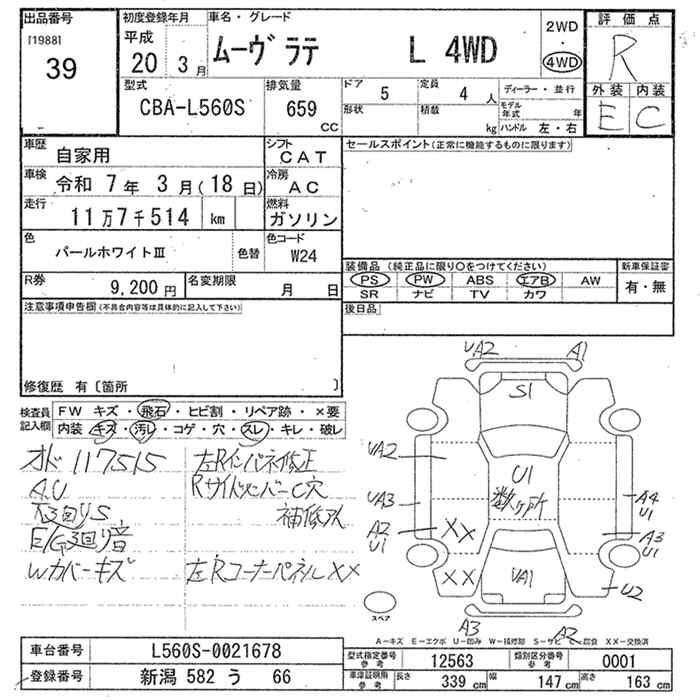 出品番号
[1988]
39
初度登録年月
平成
20 3月
車名・グレード
ムーヴ ラテ L 4WD
2WD
・
4WD
評価点
R
外装 内装
E C
型式
CBA-L560S
排気量
659 CC
ドア
5
形状
定員
4 人
積載
kg
ディーラー・並行
モデル
年式 年
ハンドル 左・右
車歴
自家用
シフト
CAT
車検
令和 7年 3月(18日)
冷房
AC
走行
11万7千514 km
燃料
ガソリン
色
パールホワイトⅢ
色替
色コード
W24
R券
9,200円
名変期限
月 日
セールスポイント(正常に機能するものに限ります)
装備品 (純正品に限り○をつけてください)
PS PW ABS エアB AW
SR ナビ TV カワ
新車保証書
有・無
後日品
注意事項申告欄(不具合内容等は具体的に記入して下さい)
修復歴 有〔箇所 〕
検査員
記入欄
FW キズ・飛石・ヒビ割・リペア跡・×要
内装 キズ・汚レ・コゲ・穴・スレ・キレ・破レ
オド 117515
A.U
下3回りS
E/G3回り音
Wカバーキズ
左Rインパネ修正
RサイドメンバーC穴
補修跡
左Rコーナーパネル XX
UA2
A1
S1
UA2
U1
数ヶ所
UA3
A4
U1
A2
U1
XX
A3
U1
XX
UA1
U2
スペア
A3
A2
A−キズ E−エクボ U−凹み W−補修跡 S−サビ C−腐食 XX−交換済
車台番号
L560S-0021678
登録番号
新潟 582 う 66
型式指定番号
参考
12563
類別区分番号
参考
0001
車庫証明用
参考
長さ
339 cm
幅
147 cm
高さ
163 cm